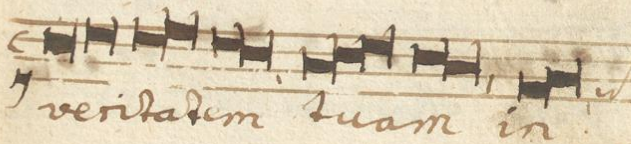 veritatem tuam in